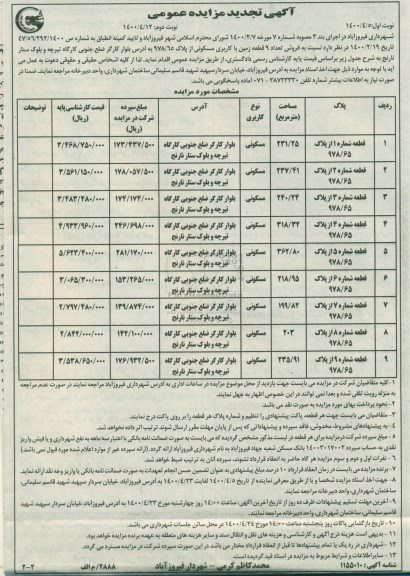 آگهی تجدید مزایده عمومی
نوبت اول: ۱۴۰۰/۴/۵
نوبت دوم: ۱۴۰۰/۴/۱۲
شهرداری فیروزآباد در اجرای بند ۳ مصوبه شماره ۷ مورخه ۱۴۰۰/۲/۷ شورای محترم اسلامی شهر فیروزآباد و تایید کمیته انطباق به شماره س ۴۷/۵۶/۲۹۲/۱۴۰۰
تاریخ ۱۴۰۰/۲/۱۹ در نظر دارد نسبت به فروش تعداد ۹ قطعه زمین با کاربری مسکونی از پلاک ۹۷۸/۶۵ به آدرس بلوار کارگر ضلع جنوبی کارگاه تیرچه و بلوک ستار
نارنج به شرح جدول زیر براساس قیمت پایه کارشناس رسمی دادگستری، از طریق مزایده عمومی اقدام نماید. لذا از کلیه اشخاص حقیقی و حقوقی دعوت به عمل می
آید با توجه به موارد ذیل جهت اخذ اسناد مزایده به آدرس فیروزآباد، خیابان سردار سپهبد شهید قاسم سلیمانی ساختمان شهرداری، واحد دبیرخانه مراجعه نمایند. ضمنا در
صورت نیاز به اطلاعات بیشتر شماره تلفن ۳۸۷۲۲۳۳۰-۰۷۱ آماده پاسخگویی می باشد.
مشخصات مورد مزایده
ردیف پلاک مساحت (مترمربع) نوع کاربری آدرس مبلغ سپرده شرکت در مزایده (ریال) قیمت کارشناسی پایه (ریال) توضیحات
۱ قطعه شماره ۱ از پلاک ۹۷۸/۶۵ ۲۳۱/۲۵ مسکونی بلوار کارگر ضلع جنوبی کارگاه تیرچه و بلوک ستار نارنج ۱۷۳/۴۳۷/۵۰۰ ۳/۴۶۸/۷۵۰/۰۰۰
۲ قطعه شماره ۲ از پلاک ۹۷۸/۶۵ ۲۳۷/۴۱ مسکونی بلوار کارگر ضلع جنوبی کارگاه تیرچه و بلوک ستار نارنج ۱۷۸/۰۵۷/۵۰۰ ۳/۵۶۱/۱۵۰/۰۰۰
۳ قطعه شماره ۳ از پلاک ۹۷۸/۶۵ ۲۴۰/۲۴ مسکونی بلوار کارگر ضلع جنوبی کارگاه تیرچه و بلوک ستار نارنج ۱۷۴/۱۷۴/۰۰۰ ۳/۴۸۳/۴۸۰/۰۰۰
۴ قطعه شماره ۴ از پلاک ۹۷۸/۶۵ ۳۱۸/۳۲ مسکونی بلوار کارگر ضلع جنوبی کارگاه تیرچه و بلوک ستار نارنج ۲۴۶/۶۹۸/۰۰۰ ۴/۹۳۳/۹۶۰/۰۰۰
۵ قطعه شماره ۵ از پلاک ۹۷۸/۶۵ ۳۶۲/۸۰ مسکونی بلوار کارگر ضلع جنوبی کارگاه تیرچه و بلوک ستار نارنج ۲۸۱/۱۷۰/۰۰۰ ۵/۶۲۳/۴۰۰/۰۰۰
۶ قطعه شماره ۶ از پلاک ۹۷۸/۶۵ ۲۱۸/۹۵ مسکونی بلوار کارگر ضلع جنوبی کارگاه تیرچه و بلوک ستار نارنج ۱۵۳/۲۶۵/۰۰۰ ۳/۰۶۵/۳۰۰/۰۰۰
۷ قطعه شماره ۷ از پلاک ۹۷۸/۶۵ ۱۹۹/۸۲ مسکونی بلوار کارگر ضلع جنوبی کارگاه تیرچه و بلوک ستار نارنج ۱۳۹/۸۷۴/۰۰۰ ۲/۷۹۷/۴۸۰/۰۰۰
۸ قطعه شماره ۸ از پلاک ۹۷۸/۶۵ ۲۰۳ مسکونی بلوار کارگر ضلع جنوبی کارگاه تیرچه و بلوک ستار نارنج ۱۴۲/۱۰۰/۰۰۰ ۲/۸۴۲/۰۰۰/۰۰۰
۹ قطعه شماره ۹ از پلاک ۹۷۸/۶۵ ۲۳۵/۹۱ مسکونی بلوار کارگر ضلع جنوبی کارگاه تیرچه و بلوک ستار نارنج ۱۷۶/۹۳۲/۵۰۰ ۳/۵۳۸/۶۵۰/۰۰۰
۱- کلیه متقاضیان شرکت در مزایده می بایست جهت بازدید از محل موضوع مزایده در ساعات اداری به آدرس شهرداری فیروزآباد مراجعه نمایند در صورت عدم مراجعه
به منزله رویت تلقی شده و بعدا نمی توانند در این خصوص اظهار بی جهل نمایند.
۲- نحوه پرداخت بهای مورد مزایده به صورت نقد می باشد.
۳- متقاضیان می بایست جهت هر قطعه، پاکت پیشنهادی را تنظیم و شماره پلاک هر قطعه را بر روی پاکت درج نمایند.
۴- به پیشنهادهای مشروط، مخدوش، فاقد سپرده و پیشنهاداتی که پس از پایان مهلت مقرر ارسال شوند ترتیب اثر داده نخواهد شد.
۵- مبلغ سپرده شرکت در مزایده برای هر قطعه در لیست مذکور مشخص گردیده که می بایست به صورت ضمانت نامه بانکی با اعتبار سه ماهه به نفع شهرداری و یا فیش واریز
نقدی به حساب سپرده بانک مسکن شعبه فیروزآباد به نام شهرداری فیروزآباد ارائه گردد
۶- نفرات اول و دوم و سوم مزایده هر گاه حاضر به انعقاد قرارداد نشوند، سپرده آنان به ترتیب ضبط خواهد شد.
۷- برنده مزایده می بایست در زمان انعقاد قرارداد ۱۰ درصد مبلغ پیشنهادی به عنوان تضمین حسن انجام تعهدات به صورت ضمانت نامه بانکی یا واریز وجه نقد ارائه نماید.
۸- جهت اخذ اسناد مزایده شخصا و یا از طریق معرفی نماینده از تاریخ ۱۴۰۰/۴/۵ لغایت ۱۴۰۰/۴/۲۳ به آدرس فیروزآباد، خیابان سردار سپهبد شهید قاسم سلیمانی،
ساختمان شهرداری، واحد دبیرخانه مراجعه نمایند.
۹- آخرین مهلت تسلیم پیشنهادات ظرف ده روز از تاریخ آخرین آگهی، ساعت ۱۴:۰۰ روز چهارشنبه مورخ ۱۴۰۰/۴/۲۳ به آدرس فیروزآباد، خیابان سردار سپهبد شهید
قاسم سلیمانی، ساختمان شهرداری، واحد دبیرخانه مراجعه نمایند.
۱۰- تاریخ بازگشایی پاکات روز پنجشنبه ساعت ۱۴:۰۰ مورخ ۱۴۰۰/۴/۲۴ در محل سالن جلسات شهرداری می باشد.
۱۱- بدیهی است هزینه درج آگهی و کارشناسی و هزینه های نقل و انتقال سند و سایر هزینه های متعلقه به عهده برنده مزایده خواهد بود.
۱۲- شهرداری در رد یک یا تمام پیشنهادها تا قبل از انعقاد قرارداد مختار می باشد در این صورت سپرده شرکت در مزایده مسترد می گردد.
۱۳- سایر اطلاعات و شرایط مربوط به مزایده در اسناد مزایده قید گردیده است.
شناسه آگهی: ۱۱۵۵۰۱۰
محمد کاظم کرمی - شهردار فیروزآباد
۲۸۸۸/ م الف
۲-۲